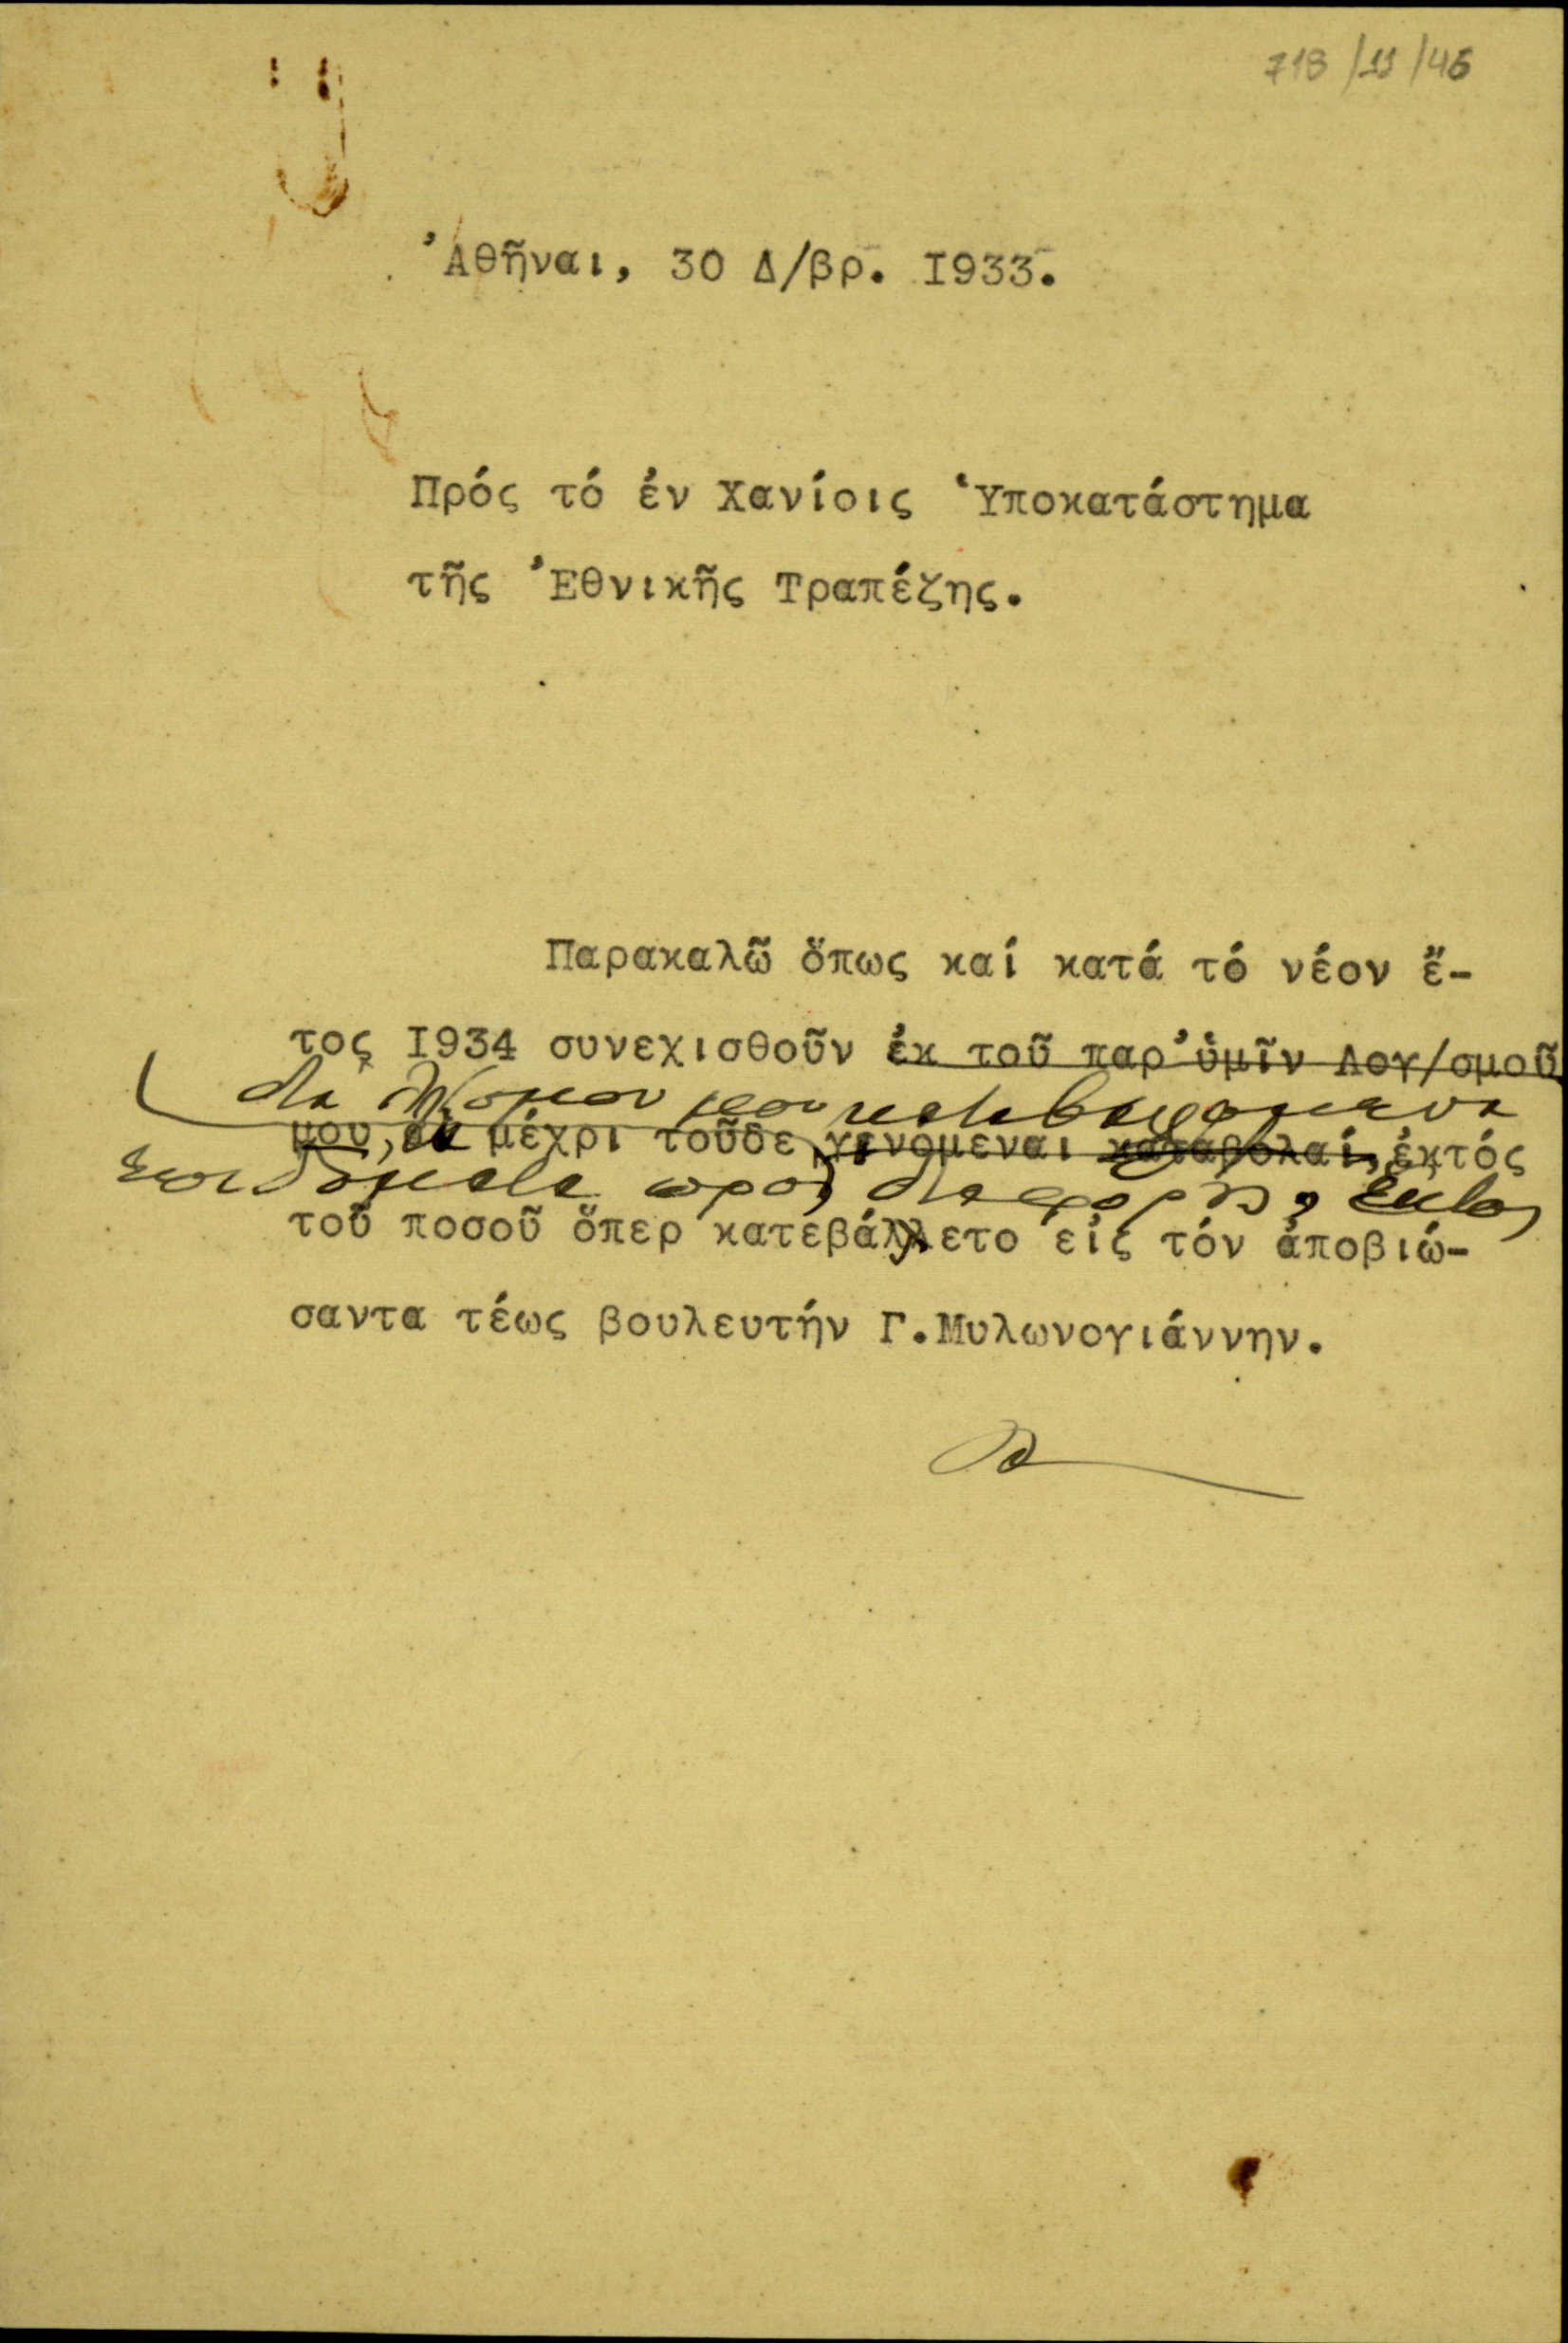 718/11/46
Ἀθῆναι, 30 Δ/βρ. 1933.
Πρός τό ἐν Χανίοις Ὑποκατάστημα
τῆς Ἐθνικῆς Τραπέζης.
Παρακαλῶ ὅπως καί κατά τό νέον ἔ-
τος 1934 συνεχισθοῦν ἐκ τοῦ παρ' ὑμῖν Λογ/σμοῦ
διά λ/σμόν μου καταβαλλόμενα
μου, μέχρι τοῦδε γενόμεναι καταβολαί, ἐκτός
ἐπιδόματα πρός διαφόρους, ἐκτός
τοῦ ποσοῦ ὅπερ κατεβάλλετο εἰς τόν ἀποβιώ-
σαντα τέως βουλευτήν Γ. Μυλωνογιάννην.